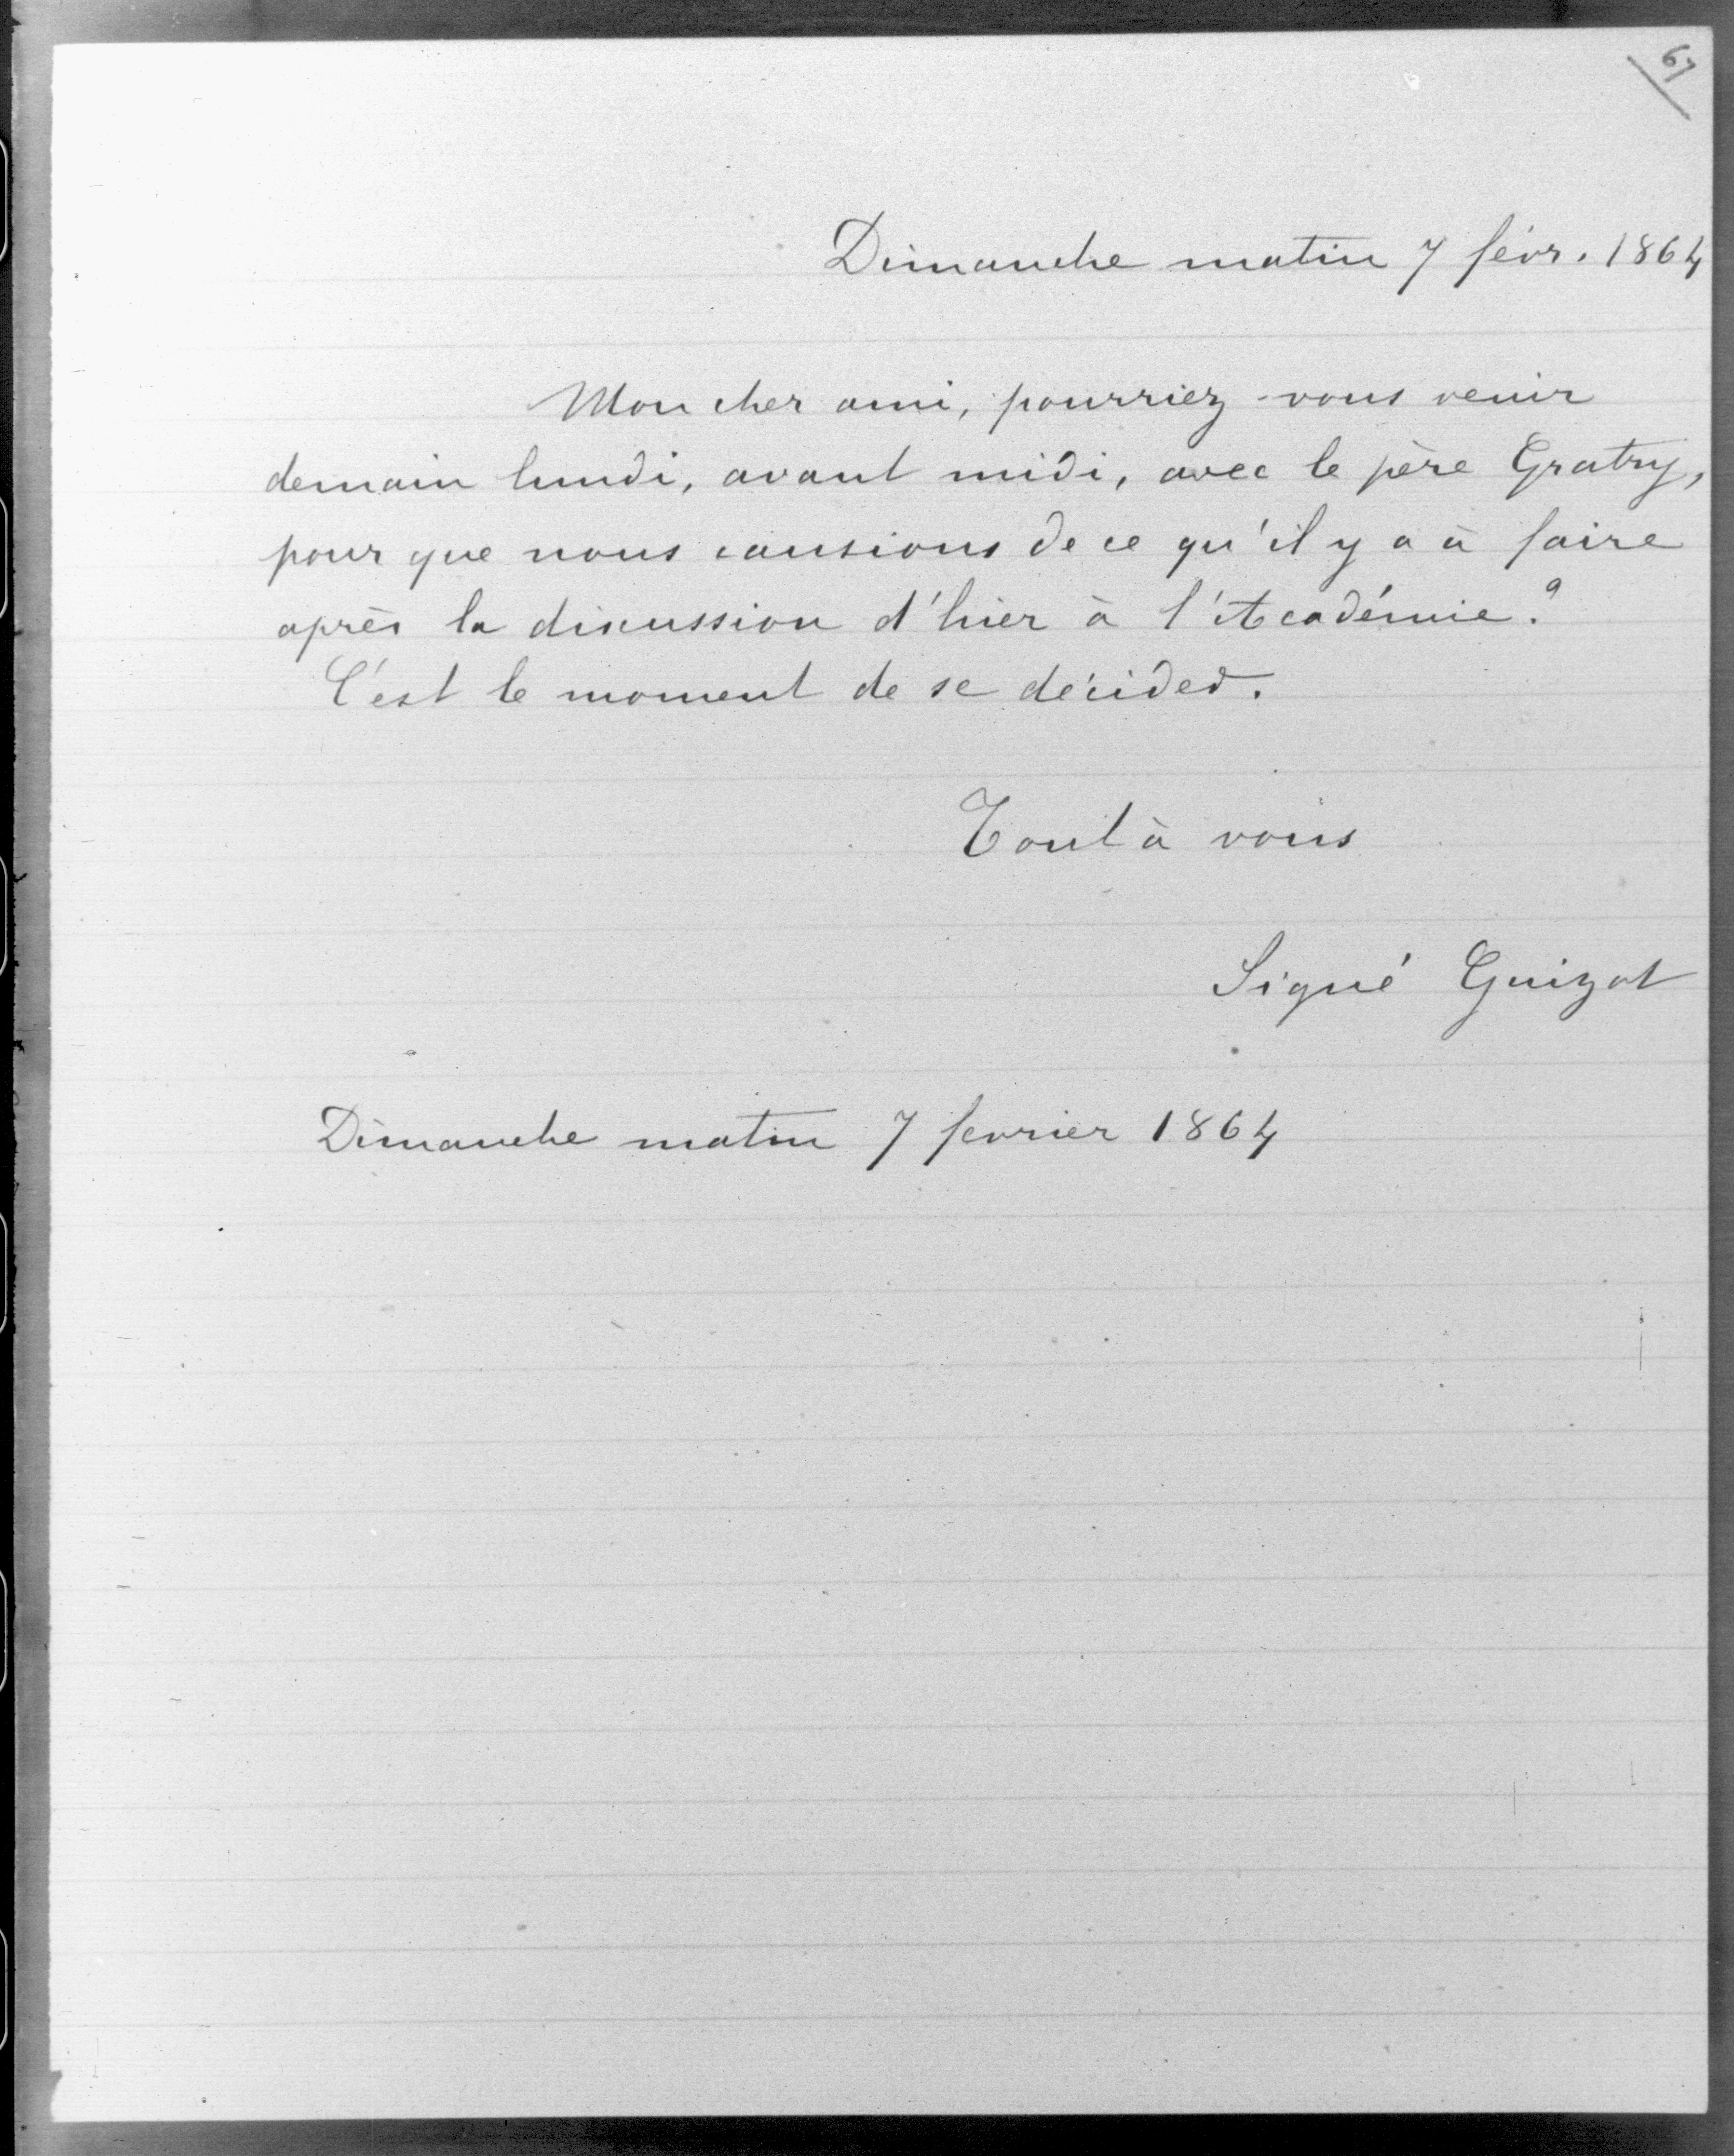 67
Dimanche matin 7 févr. 1864
Mon cher ami, pourriez-vous venir
demain lundi, avant midi, avec le père Gratry,
pour que nous causions de ce qu'il y a à faire
après la discussion d'hier à l'Académie?
C'est le moment de se décider.
Tout à vous
Signé Guizot
Dimanche matin 7 fevrier 1864